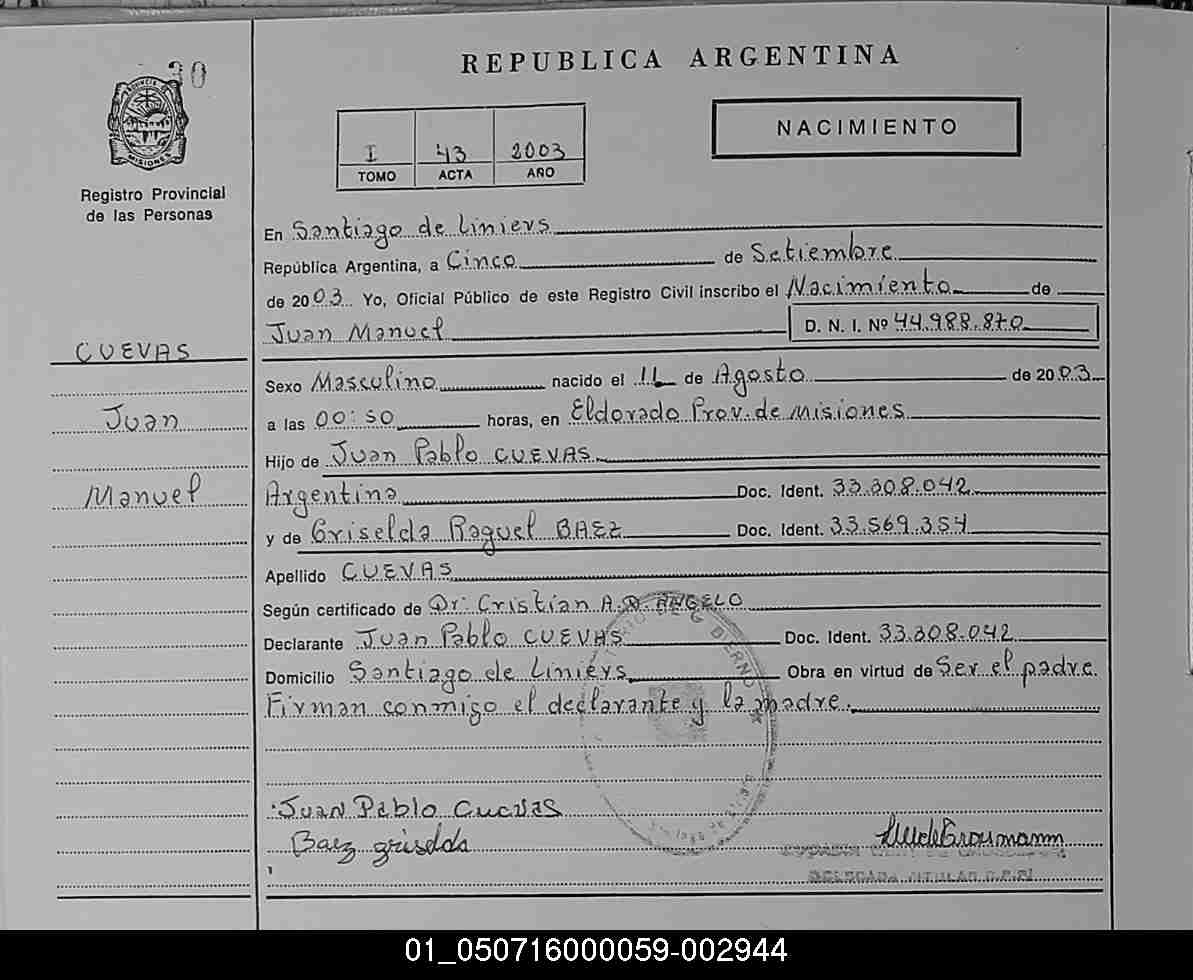 30
REPUBLICA ARGENTINA
PROVINCIA DE
MISIONES
Registro Provincial
de las Personas
I 43 2003
TOMO ACTA AÑO
NACIMIENTO
En Santiago de Liniers
República Argentina, a Cinco de Setiembre
de 2003 Yo, Oficial Público de este Registro Civil inscribo el Nacimiento de
Juan Manuel D. N. I. Nº 44.988.870
CUEVAS
Sexo Masculino nacido el 11 de Agosto de 2003
Juan
a las 00:50 horas, en Eldorado Prov. de Misiones
Hijo de Juan Pablo CUEVAS
Manuel
Argentina Doc. Ident. 33.308.042
y de Griselda Raquel BAEZ Doc. Ident. 33.569.354
Apellido CUEVAS
Según certificado de Dr. Cristian A. D. ANGELO
Declarante Juan Pablo CUEVAS Doc. Ident. 33.308.042
Domicilio Santiago de Liniers Obra en virtud de Ser el padre
Firman conmigo el declarante y la madre.
Juan Pablo Cuevas
Baez griselda
DELEGADA TITULAR
01_050716000059-002944